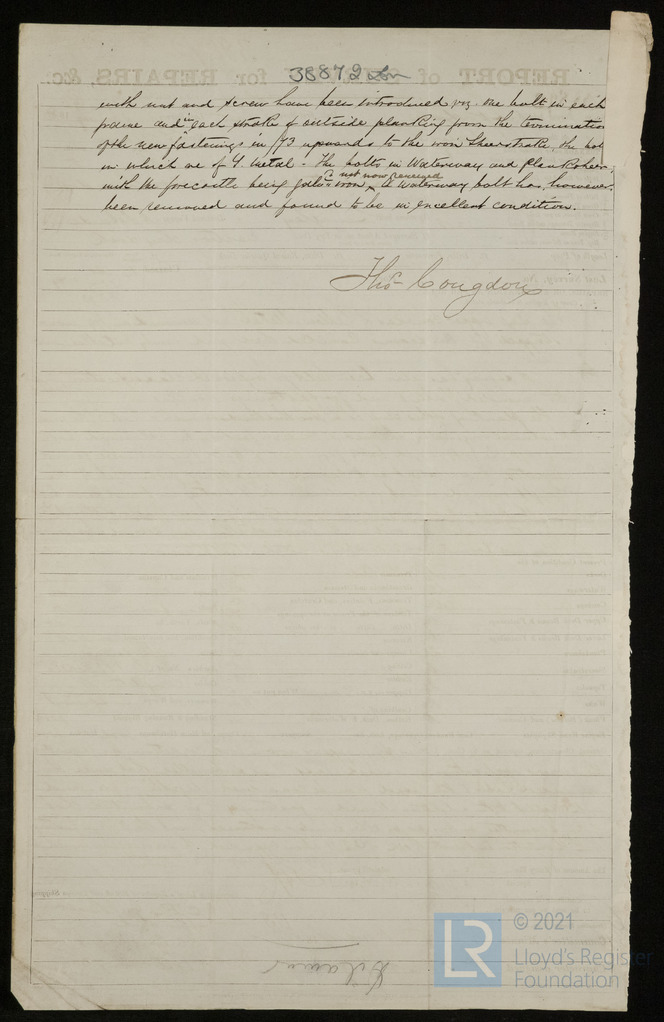 38872 Lon
with nut and screw have been introduced viz. one bolt in each
frame and in each strake of outside planking from the termination
of the new fastenings in /73 upwards to the iron Sheerstrake, the
in which are of Y. Metal. The bolts in Waterway and
with the forecastle being galvd iron, not now removed A waterway bolt has, however,
been removed and found to be in excellent condition.
Thos Congdon
© 2021
Lloyd's Register
Foundation
LR